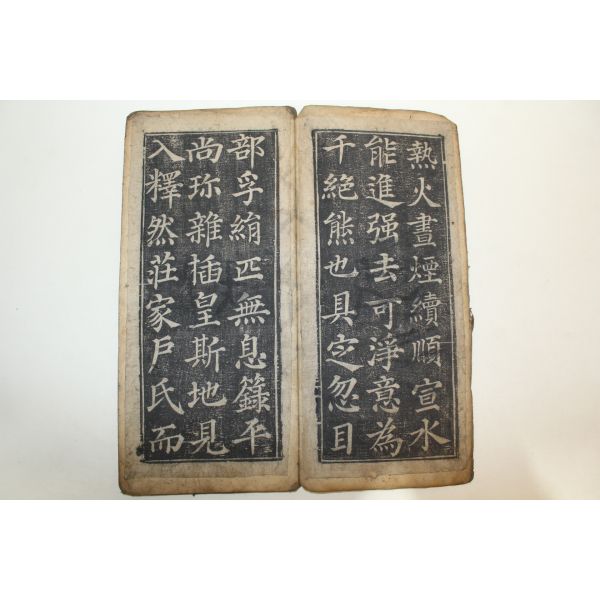 熱火晝煙續順宣水
能進强去可淨意為
千絶熊也具定忽目
部孚絹匹無息籙平
尚珎雜插皇斯地見
入釋然莊家戶氏而